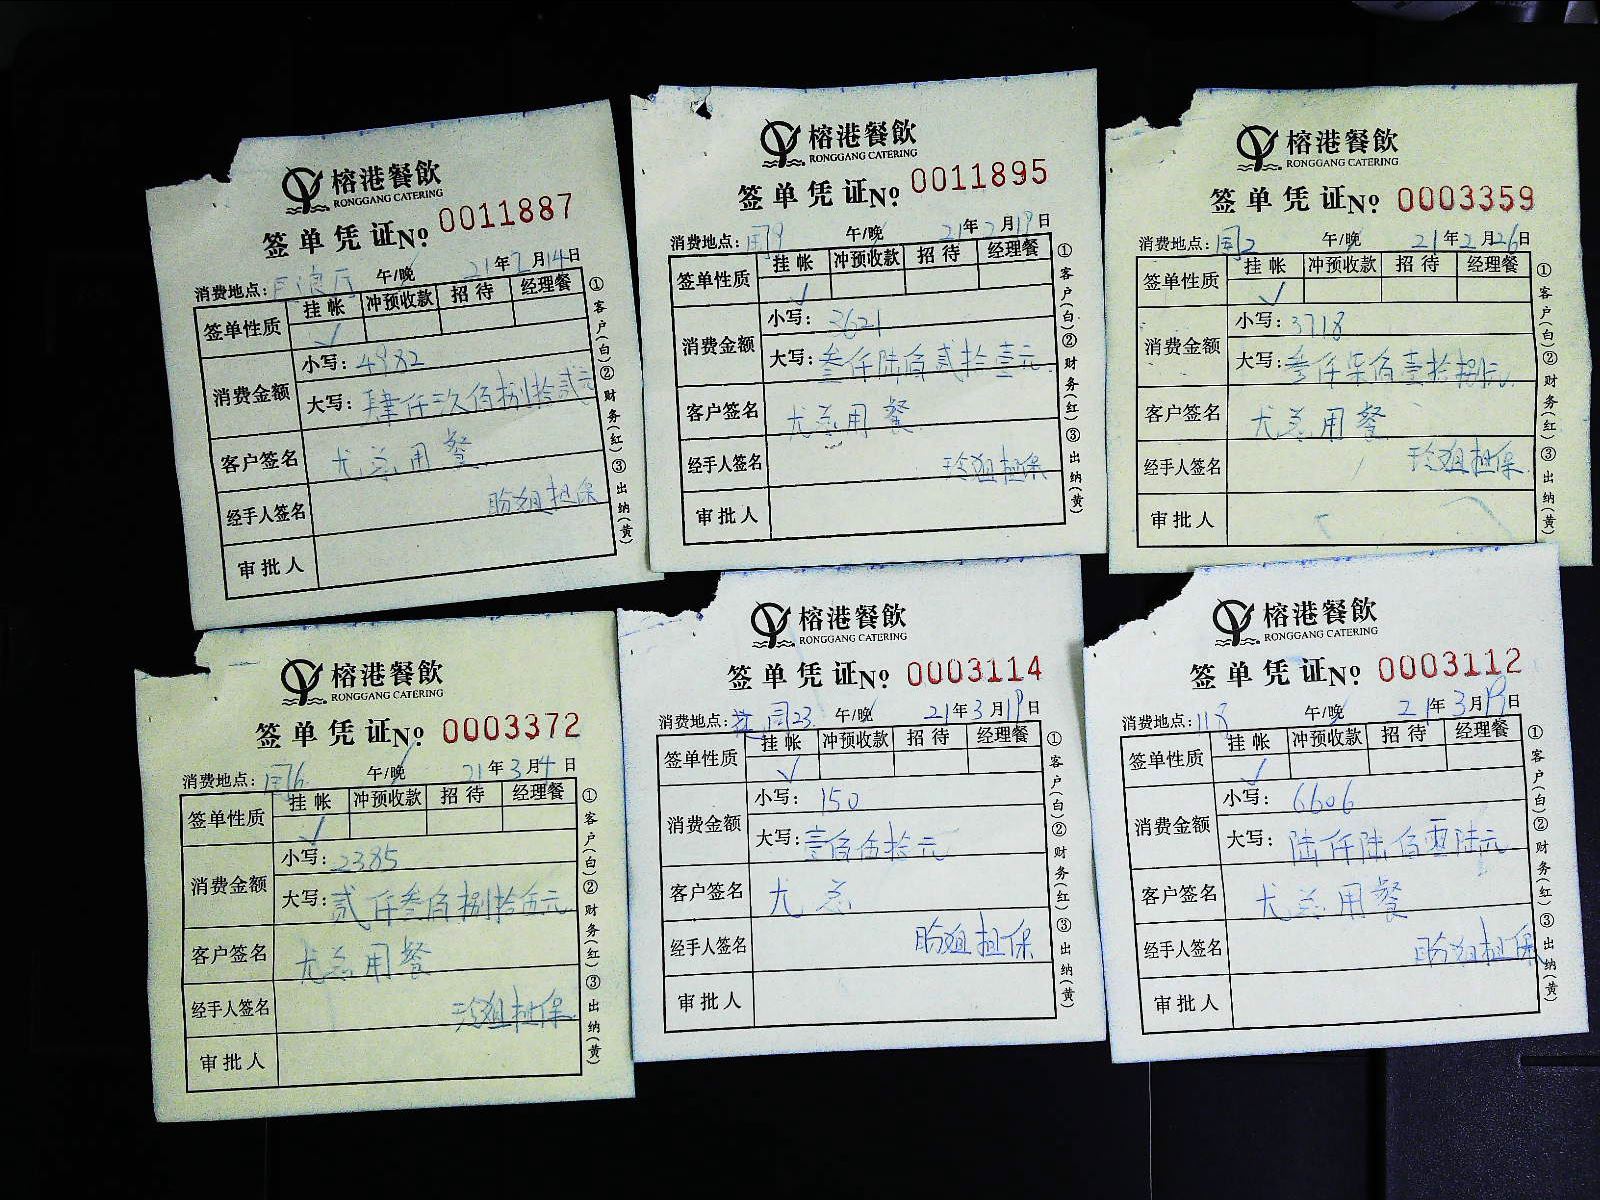 榕港餐飲
RONGGANG CATERING
签单凭证№ 0011887
消费地点: 午/晚 21年2月14日
签单性质 挂帐 冲预收款 招待 经理餐
✓
消费金额 小写: 4982
大写: 肆仟玖佰捌拾贰元
客户签名 尤总用餐
经手人签名 盼姐担保
审批人
①客户(白)②财务(红)③出纳(黄)
榕港餐飲
RONGGANG CATERING
签单凭证№ 0011895
消费地点: 午/晚 21年2月19日
签单性质 挂帐 冲预收款 招待 经理餐
✓
消费金额 小写: 3621
大写: 叁仟陆佰贰拾壹元
客户签名 尤总用餐
经手人签名 玲姐担保
审批人
①客户(白)②财务(红)③出纳(黄)
榕港餐飲
RONGGANG CATERING
签单凭证№ 0003359
消费地点: 周2 午/晚 21年2月26日
签单性质 挂帐 冲预收款 招待 经理餐
✓
消费金额 小写: 3718
大写: 叁仟柒佰壹拾捌元
客户签名 尤总用餐
经手人签名 玲姐担保
审批人
①客户(白)②财务(红)③出纳(黄)
榕港餐飲
RONGGANG CATERING
签单凭证№ 0003372
消费地点: 周16 午/晚 21年3月4日
签单性质 挂帐 冲预收款 招待 经理餐
✓
消费金额 小写: 2385
大写: 贰仟叁佰捌拾伍元
客户签名 尤总用餐
经手人签名 玲姐担保
审批人
①客户(白)②财务(红)③出纳(黄)
榕港餐飲
RONGGANG CATERING
签单凭证№ 0003114
消费地点: 周23 午/晚 21年3月19日
签单性质 挂帐 冲预收款 招待 经理餐
✓
消费金额 小写: 150
大写: 壹佰伍拾元
客户签名 尤总
经手人签名 盼姐担保
审批人
①客户(白)②财务(红)③出纳(黄)
榕港餐飲
RONGGANG CATERING
签单凭证№ 0003112
消费地点: 118 午/晚 21年3月19日
签单性质 挂帐 冲预收款 招待 经理餐
✓
消费金额 小写: 6606
大写: 陆仟陆佰零陆元
客户签名 尤总用餐
经手人签名 盼姐担保
审批人
①客户(白)②财务(红)③出纳(黄)